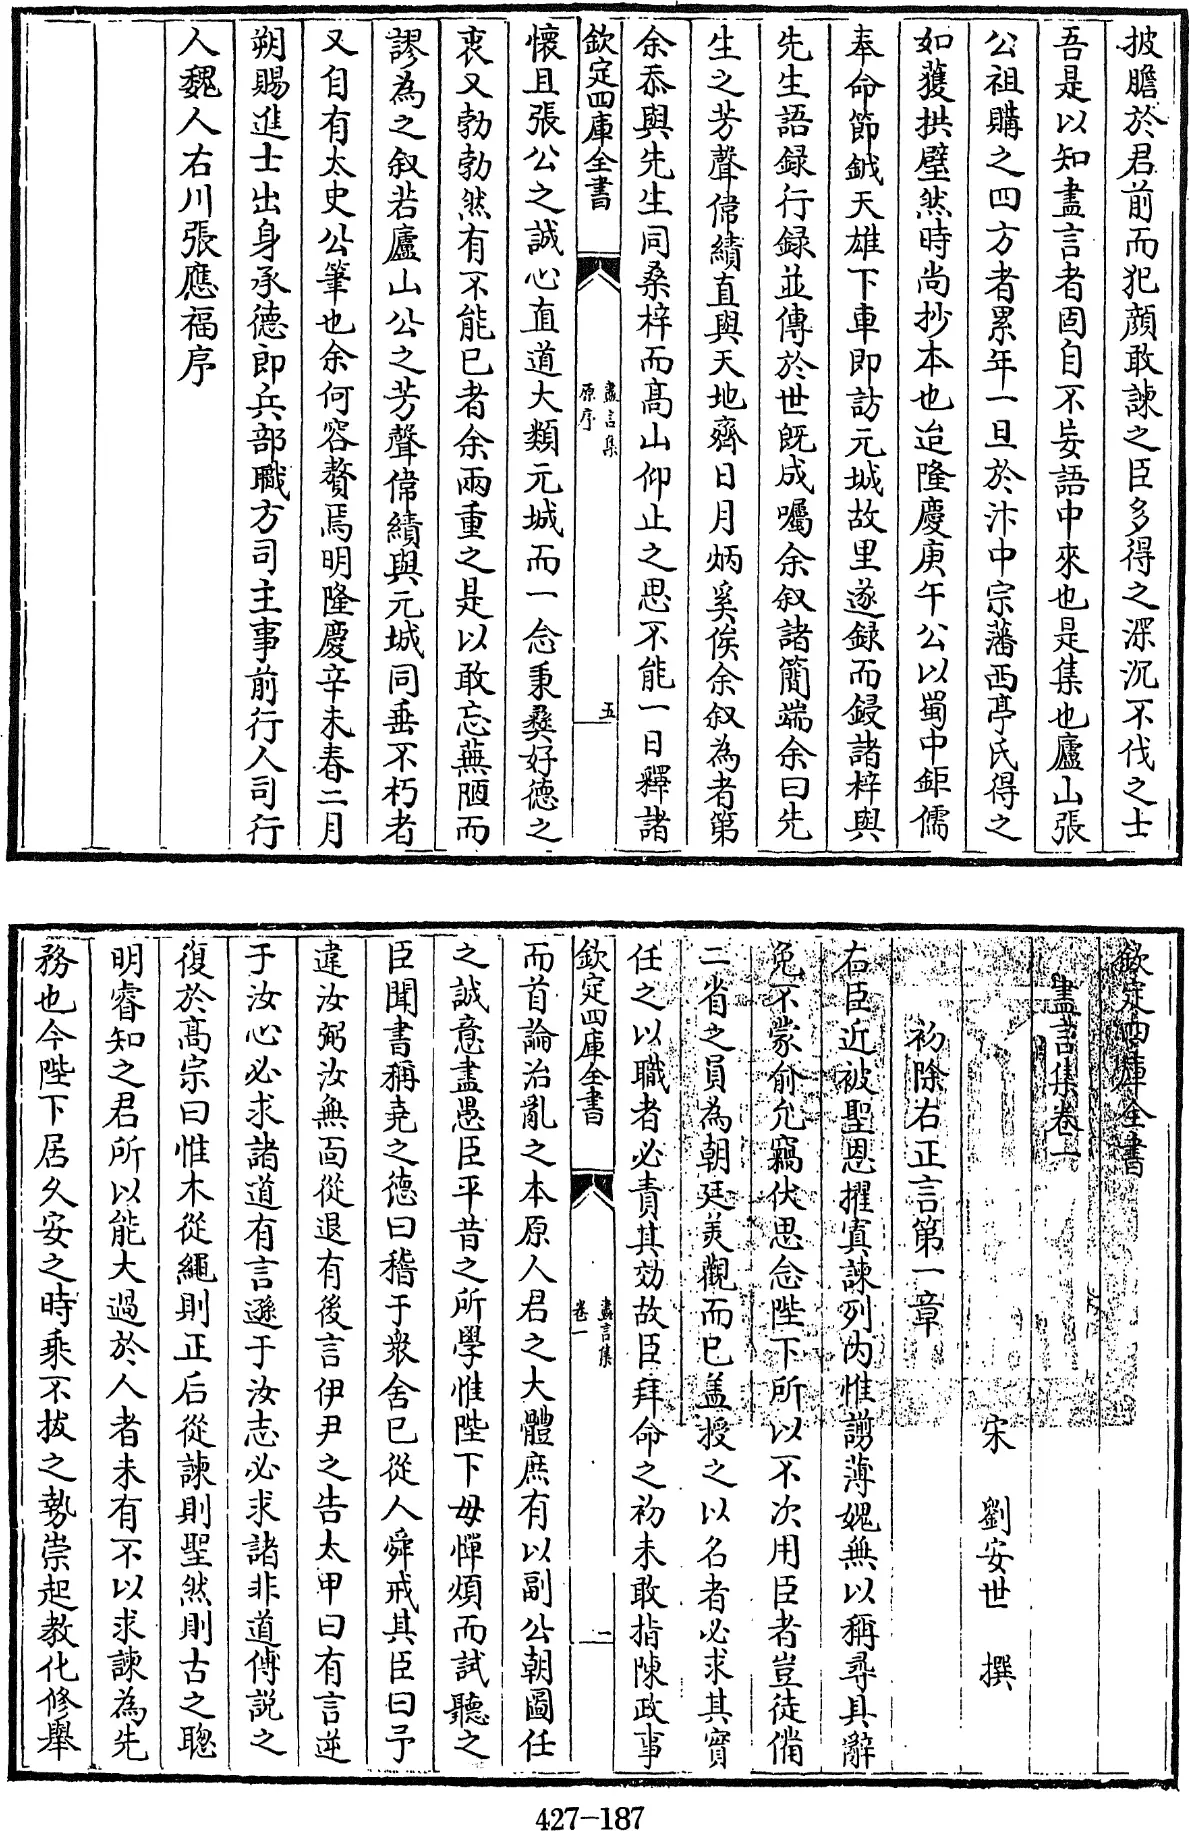 披膽於君前而犯顔敢諫之臣多得之深沉不伐之士
吾是以知盡言者固自不妄語中來也是集也廬山張
公祖購之四方者累年一旦於汴中宗藩西亭氏得之
如獲拱璧然時尚抄本也迨隆慶庚午公以蜀中鉅儒
奉命節鉞天雄下車即訪元城故里遂録而鋟諸梓與
先生語録行録並傳於世既成囑余叙諸簡端余曰先
生之芳聲偉績直與天地齊日月炳奚俟余叙為者第
余忝與先生同桑梓而高山仰止之思不能一日釋諸
欽定四庫全書
盡言集
原序
五
懷且張公之誠心直道大類元城而一念秉彛好德之
衷又勃勃然有不能已者余兩重之是以敢忘蕪陋而
謬為之叙若廬山公之芳聲偉績與元城同垂不朽者
又自有太史公筆也余何容贅焉明隆慶辛未春二月
朔賜進士出身承德郎兵部職方司主事前行人司行
人魏人右川張應福序
欽定四庫全書
盡言集卷一
宋 劉安世 撰
初除右正言第一章
右臣近被聖恩擢寘諫列内惟謭薄媿無以稱尋具辭
免不蒙俞允竊伏思念陛下所以不次用臣者豈徒備
二省之員為朝廷美觀而已盖授之以名者必求其實
任之以職者必責其効故臣拜命之初未敢指陳政事
欽定四庫全書
盡言集
卷一
一
而首論治亂之本原人君之大體庶有以副公朝圖任
之誠意盡愚臣平昔之所學惟陛下毋憚煩而試聽之
臣聞書稱堯之德曰稽于衆舍已從人舜戒其臣曰予
違汝弼汝無面從退有後言伊尹之告太甲曰有言逆
于汝心必求諸道有言遜于汝志必求諸非道傅説之
復於高宗曰惟木從繩則正后從諫則聖然則古之聰
明睿知之君所以能大過於人者未有不以求諫為先
務也今陛下居久安之時乘不拔之勢崇起教化修舉
427-187